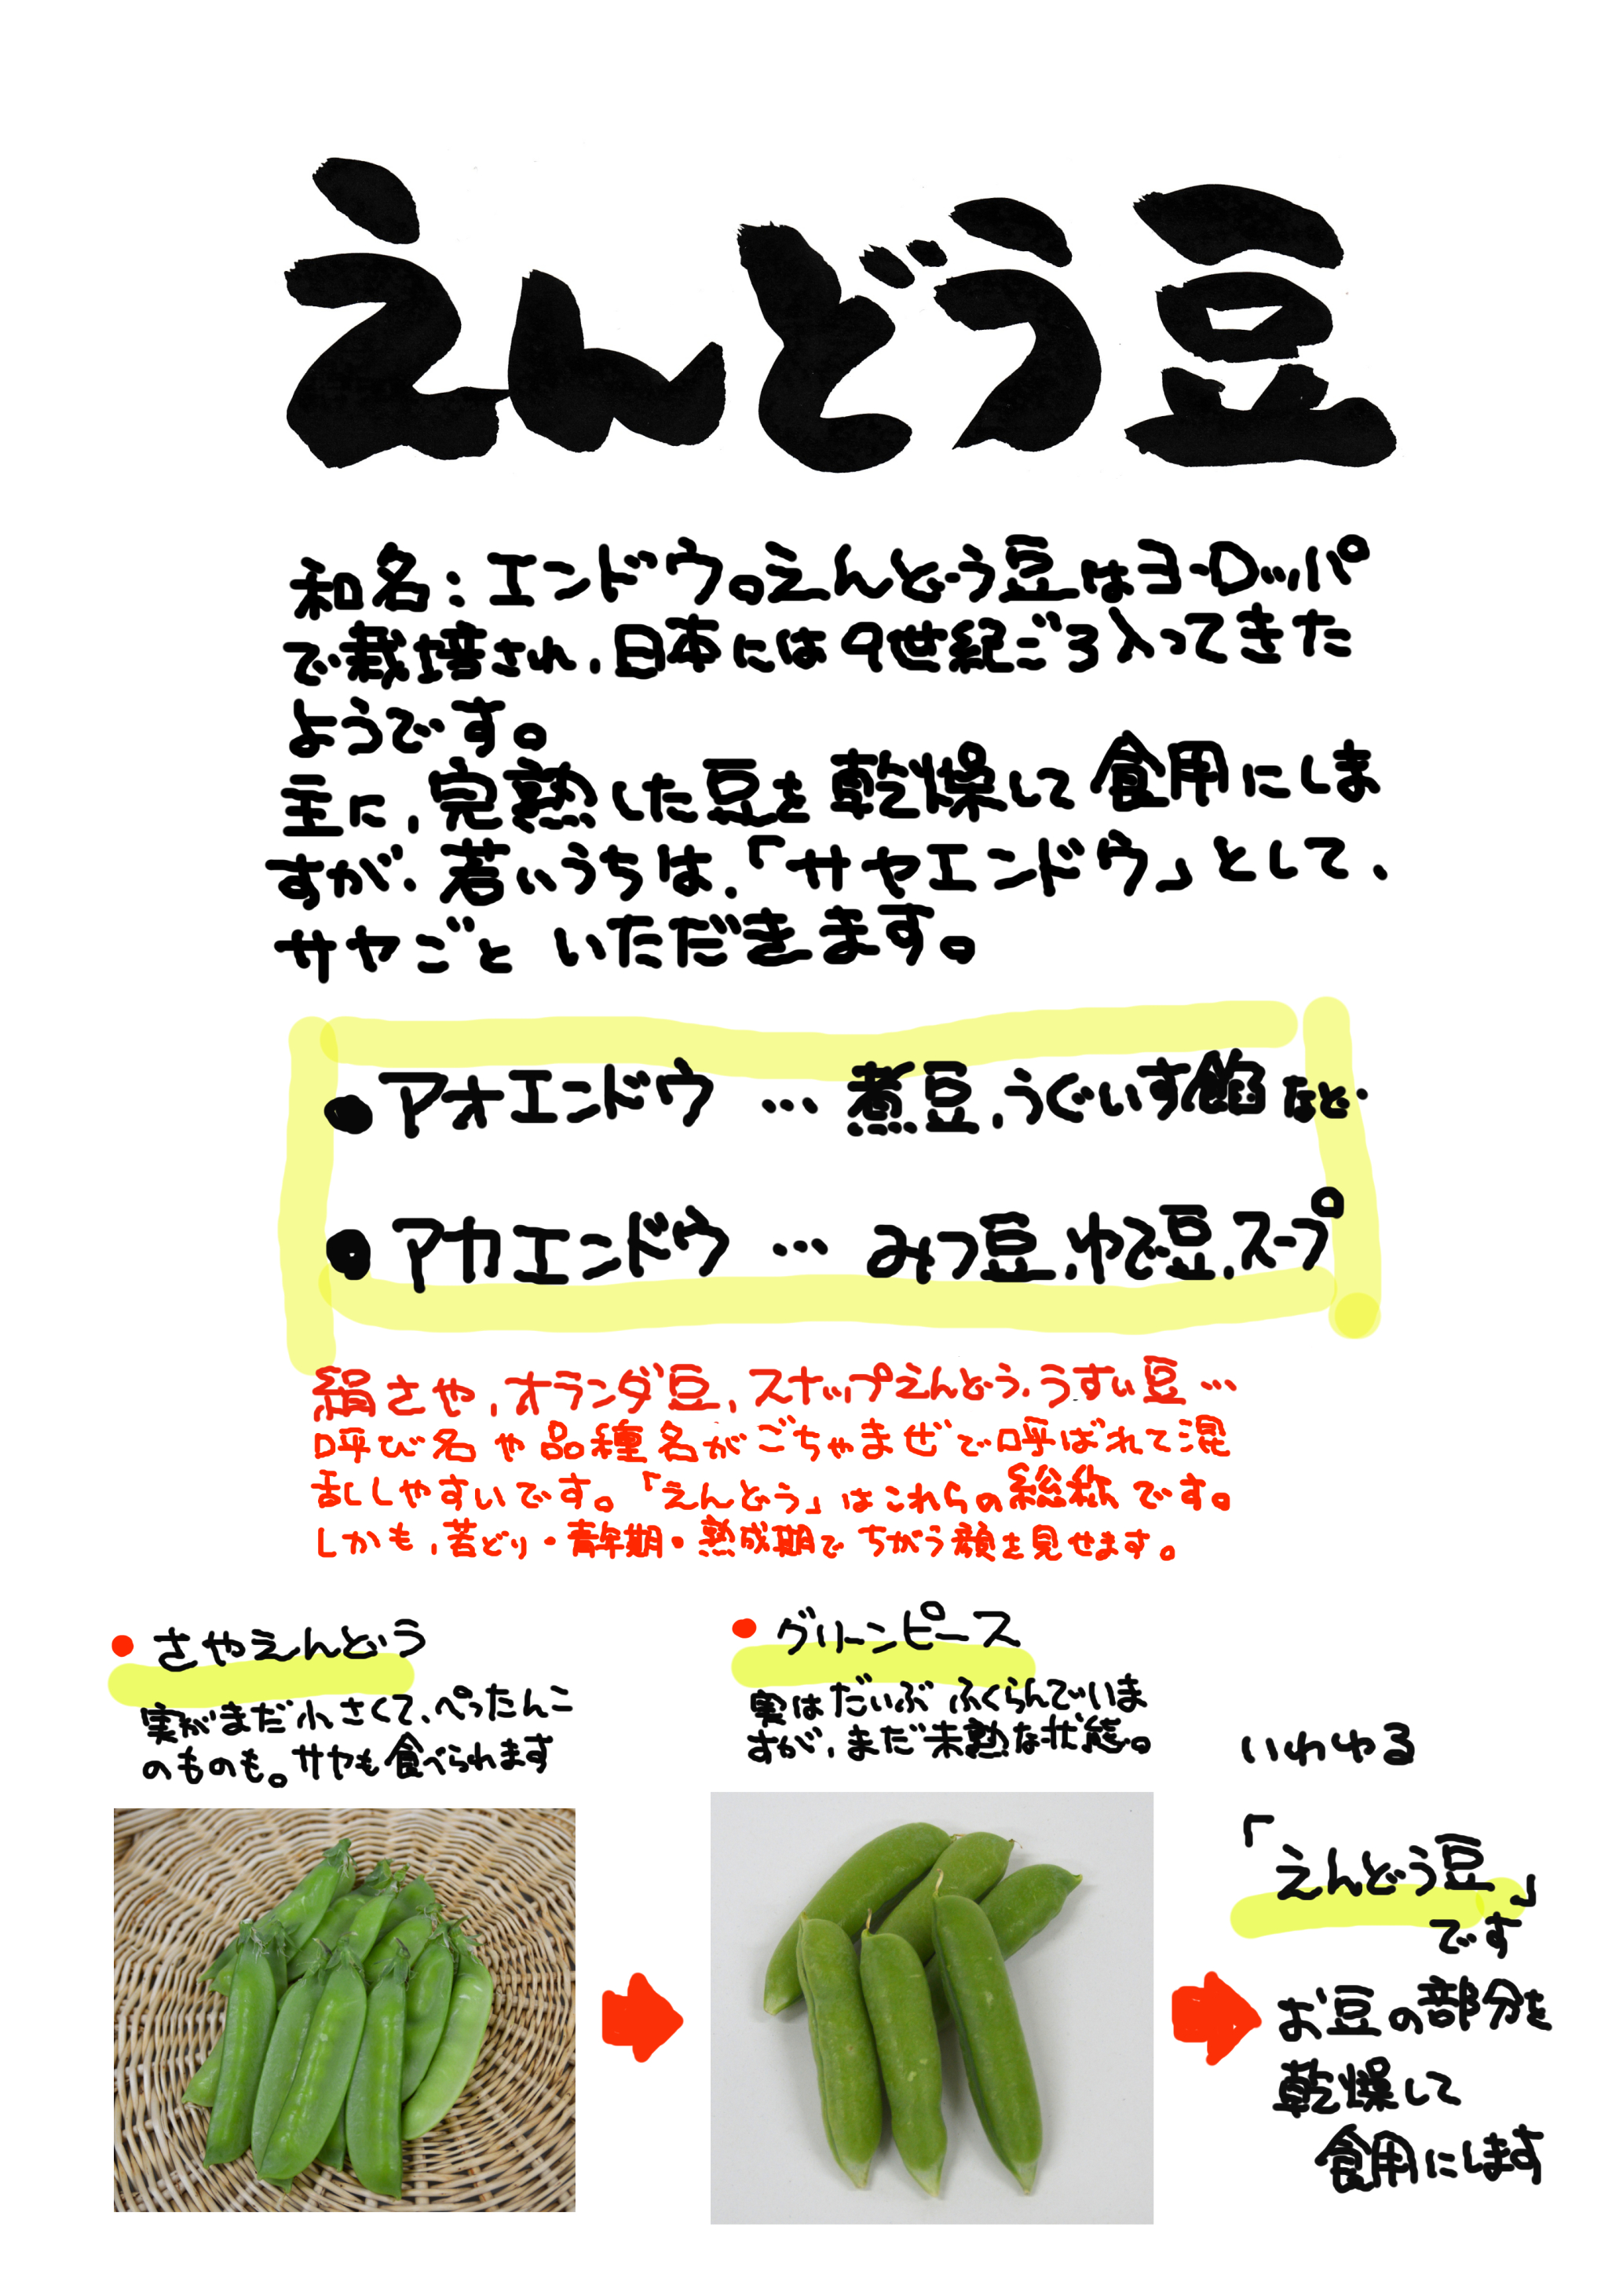 えんどう豆
和名：エンドウ。えんどう豆はヨーロッパ
で栽培され、日本には9世紀ごろ入ってきた
ようです。
主に、完熟した豆を乾燥して食用にしま
すが、若いうちは、「サヤエンドウ」として、
サヤごといただきます。
●アオエンドウ … 煮豆、うぐいす餡など
●アカエンドウ … みつ豆、ゆで豆、スープ
絹さや、オランダ豆、スナップえんどう、うすい豆…
呼び名や品種名がごちゃまぜで呼ばれて混
乱しやすいです。「えんどう」はこれらの総称です。
しかも、若どり・青年期・熟成期でちがう顔を見せます。
●さやえんどう
実がまだ小さくて、ぺったんこ
のものも。サヤも食べられます
●グリーンピース
実はだいぶふくらんでいま
すが、まだ未熟な状態。
いわゆる
「えんどう豆」
です
お豆の部分を
乾燥して
食用にします